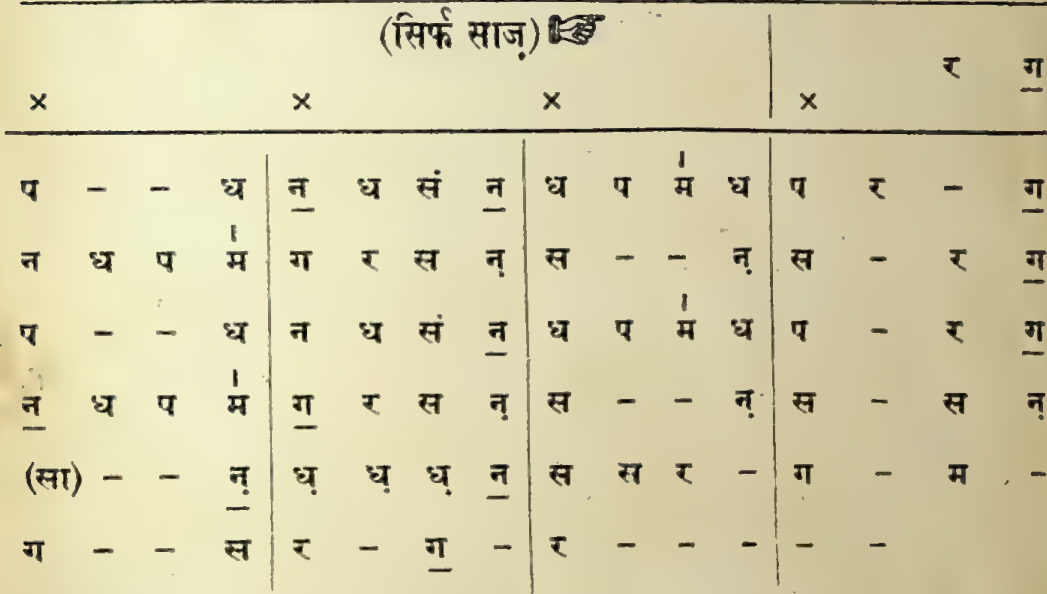 (सिर्फ साज़)
र ग॒
× × × ×
प - - ध | न॒ ध सं न॒ | ध प म॑ ध | प र - ग॒
न ध प म॑ | ग र स ऩ | स - - ऩ | स - र ग॒
प - - ध | न ध सं न॒ | ध प म॑ ध | प - र ग॒
न॒ ध प म॑ | ग॒ र स ऩ | स - - ऩ | स - स ऩ
(सा) - - ऩ॒ | ध़ ध़ ध़ ऩ॒ | स स र - | ग - म -
ग - - स | र - ग॒ - | र - - - | - -